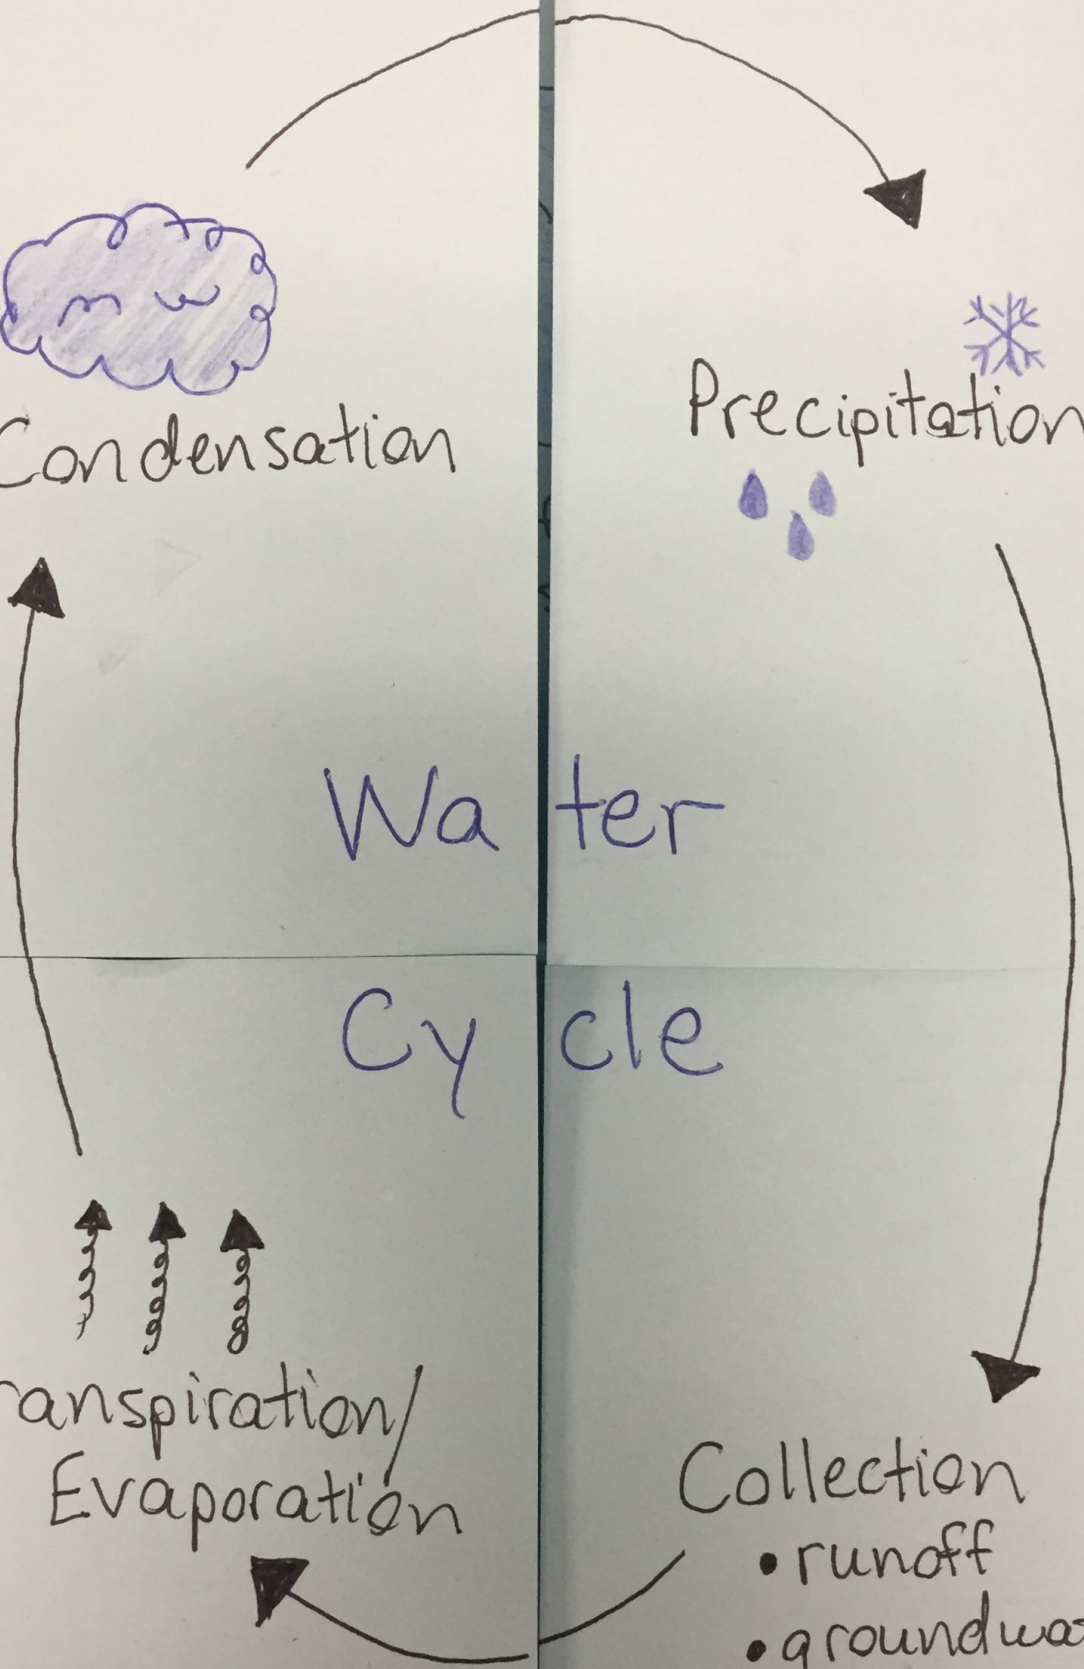 Condensation
Precipitation
Water
Cycle
ranspiration/
Evaporation
Collection
• runoff
• groundwa